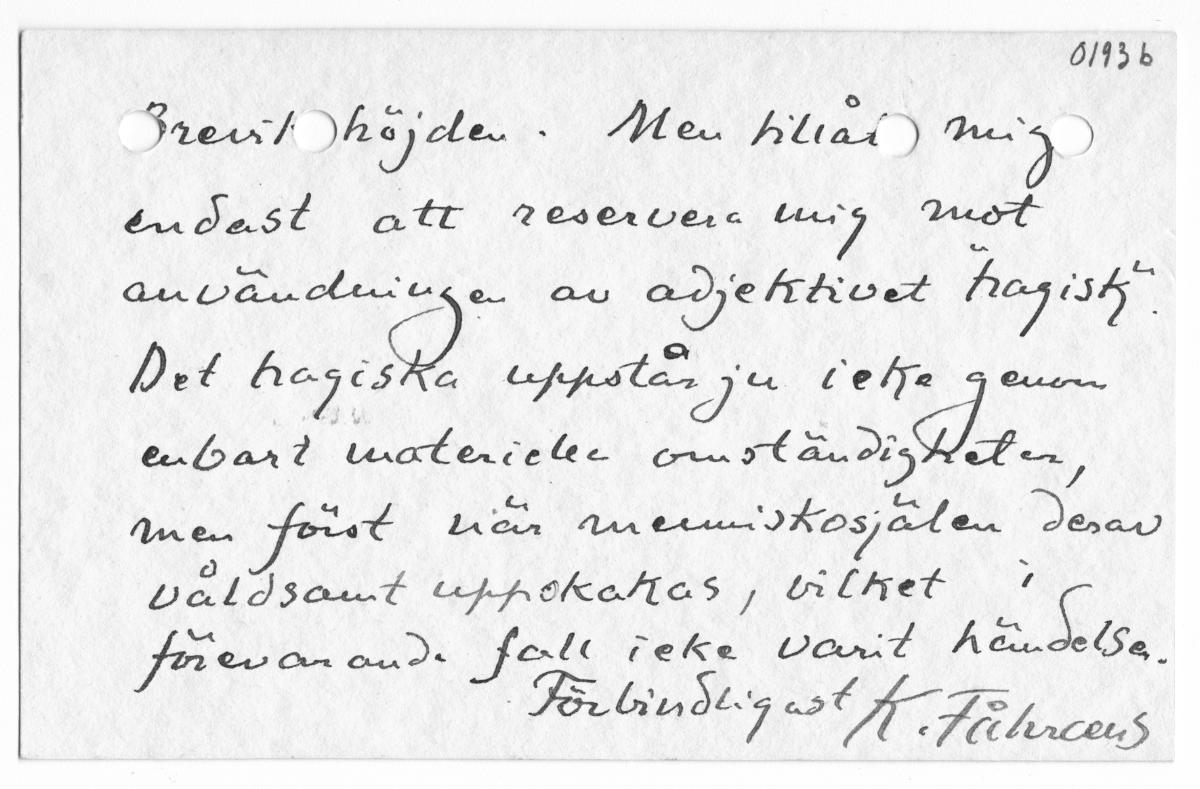 0193 b
Brevikhöjden. Men tillåt mig
endast att reservera mig mot
användningen av adjektivet "tragisk".
Det tragiska uppstår ju icke genom
enbart materiella omständigheter,
men först när menniskosjälen derav
våldsamt uppskakas, vilket i
förevarande fall icke varit händelsen.
Förbindligast K. Fåhraeus